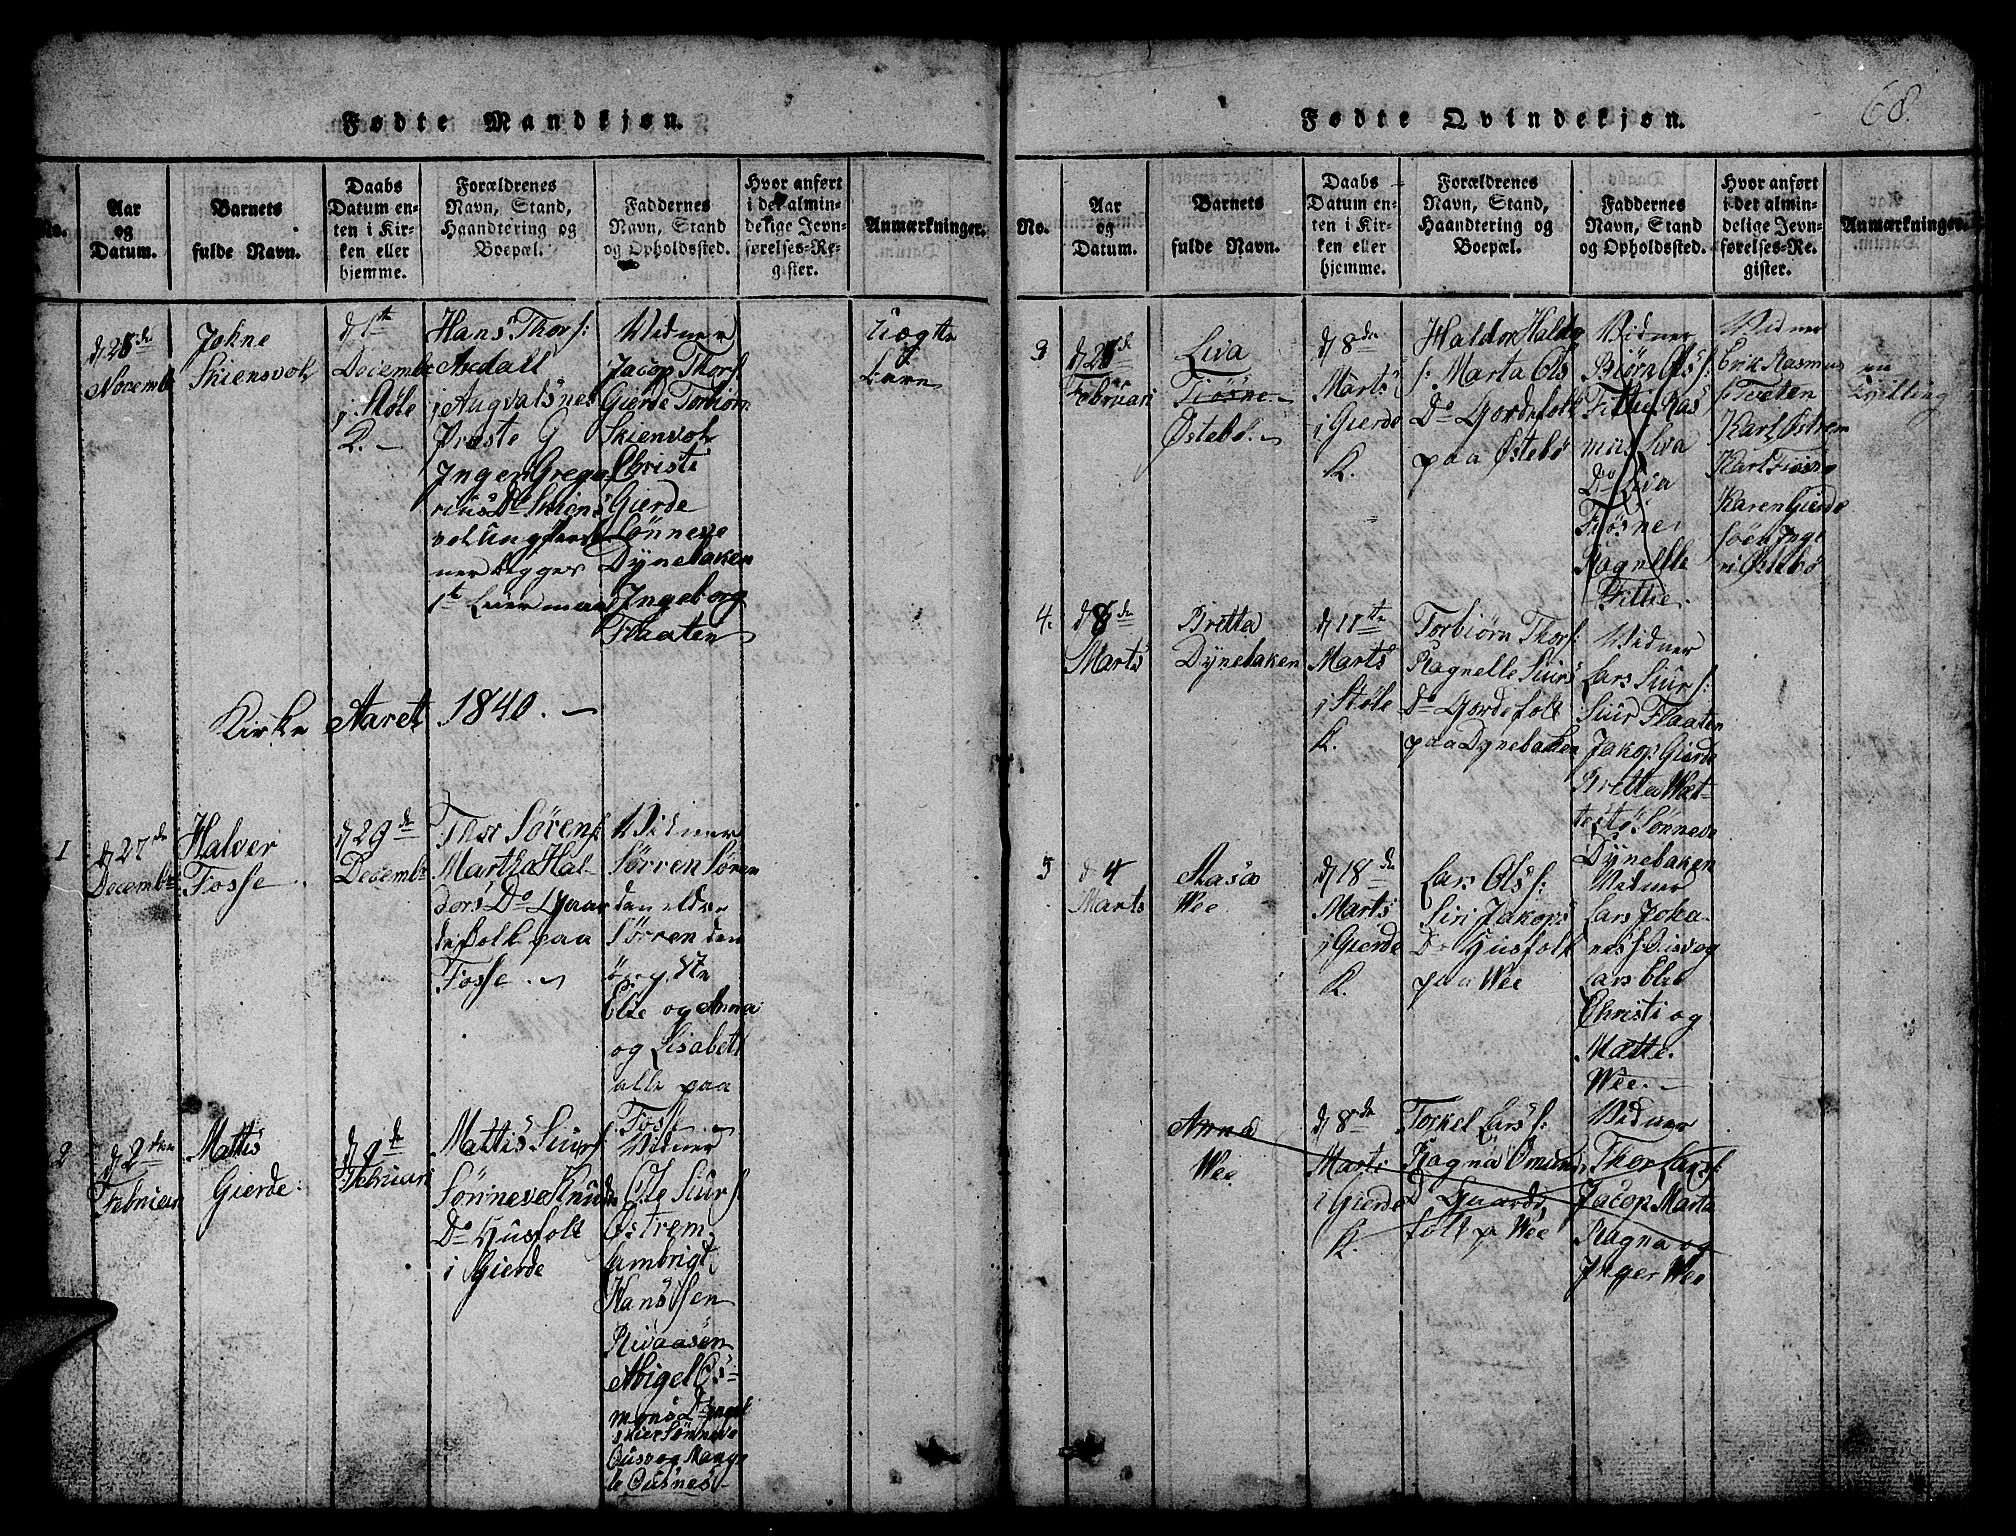 Fødte Mandkjøn.
No.
Aar
og
Datum.
Barnets
fulde Navn.
Daabs
Datum en-
ten i Kir-
ken eller
hjemme.
Forældrenes
Navn, Stand,
Haandtering og
Boepæl.
Faddernes
Navn, Stand
og Opholdssted.
Hvor anført
i det almin-
delige Jevn-
førelses-Re-
gister.
Anmærkninger.
d 28de
Novemb
Johne
Skiensvol
Decembr
i Støle
K.
Hans Thors:
Aredall
i Augvalsnes
Præste G
Inger Grega
rius Do Skiens
vol
Vidner
Jacop Thors
Gierde Torbiørn
Skiensvol
Christi
Gierde
Sønneve
Dynebaken
Ingeborg
Flaaten
Uægte
Kirke Aaret 1840.
1
d 27de
Decembr
Halver
Fosse
d 29de
Decembr
Thor Sørens
Martha Hal-
dors Do Gaar
defolk paa
Fosse
Vidner
Sørren Søren
den eldre
Sørren den
yngste
Else og Anna
og Lisabet
alle paa
Fosse
2
d 2den
Februari
Mattis
Gierde
d 9de
Februari
Mattis Siurs:
Sønneva Knuds
Do Husfolk
i Gierde
Vidner
Ole Siurs
Østrem
Lambrigt
Hans Sen
Rivaasen
Abigel Os-
mons Do
Sønneve
Ousvog Mang
le Ousnes
68.
Fødte Qvindekjøn.
No.
Aar
og
Datum.
Barnets
fulde Navn.
Daabs
Datum en-
ten i Kir-
ken eller
hjemme.
Forældrenes
Navn, Stand,
Haandtering og
Boepæl.
Faddernes
Navn, Stand
og Opholdssted.
Hvor anført
i det almin-
delige Jevn-
førelses-Re-
gister.
Anmærkninger.
3
Februari
Liva
Fiøsne
Østebø
d 8de
Marts
i Gierde
K.
Haldor Haldo
s: Marta Ols
Do Gordefolk
paa Østebø
Vidner
Biørn Ols:
Fittie Ras
mus Liva
Do Liva
Fiøsne
Ragnelle
Fittie
Vidner
Erik Rasmus
s Tveten
Karl Østrem
Karl Fiøsne
Karen Gierde
Søen Inge
ri Østebø
en
Tvilling
4.
d 8de
Marts
Bretta
Dynebaken
d 11te
Marts
i Støle
K.
Torbiørn Thors:
Ragnelle Siurs
Do Gordefolk
paa Dynebaken
Vidner
Lars Siurs:
Siur Flaaten
Jakop Gierde
Bretta Wæt-
testø Sønneve
Dynebaken
5
d 4
Marts
Aasa
Wee
d 18de
Marts
i Gierde
K.
Lars Ols:
Siri Jakops
Do Husfolk
paa Wee
Vidner
Lars Joha-
nes
Lars
Christi og
Mætte
Wee
Anna
Wee
d 8de
Marts
i Gierde
K.
Torkel Lars:
Ragna Omunds
D Guards
folk p Wee
Vidner
Thor Lars:
Jacop Marta
Ragna og
Inger Wee